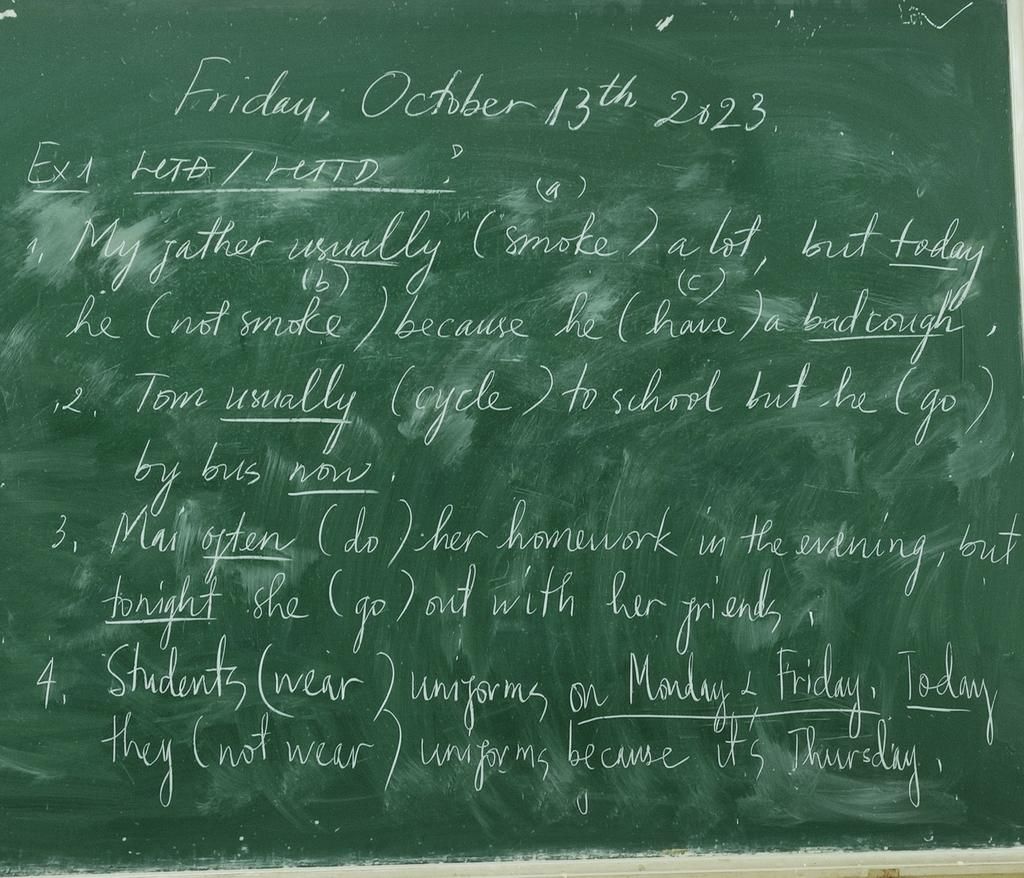 Friday, October 13th 2023.
Ex1 HTĐ / HTTD ?
(a)
1. My father usually (smoke) a lot, but today
(b) (c)
he (not smoke) because he (have) a bad cough.
2. Tom usually (cycle) to school but he (go)
by bus now.
3. Mai often (do) her homework in the evening, but
tonight she (go) out with her friends.
4. Students (wear) uniforms on Monday & Friday. Today
they (not wear) uniforms because it's Thursday.